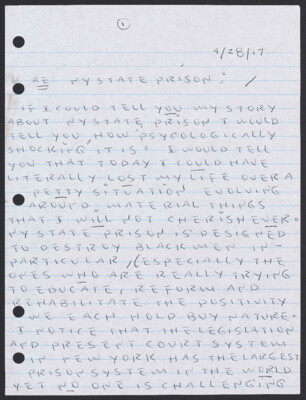 1
4/28/17
RE: NY STATE PRISON: /
IF I COULD TELL YOU MY STORY
ABOUT NY STATE PRISON I WOULD
TELL YOU HOW PSYCOLOGICALLY
SHOCKING IT IS. I WOULD TELL
YOU THAT TODAY I COULD HAVE
LITERALLY LOST MY LIFE OVER A
PETTY SITUATION EVOLVING
AROUND MATERIAL THINGS
THAT I WILL NOT CHERISH EVER.
NY STATE PRISON IS DESIGNED
TO DESTROY BLACK MEN IN-
PARTICULAR, (ESPECIALLY THE
ONES WHO ARE REALLY TRYING
TO EDUCATE, REFORM AND
REHABILITATE THE POSITIVITY
WE EACH HOLD BUY NATURE.
I NOTICE THAT THE LEGISLATION
AND PRESENT COURT SYSTEM
IN NEW YORK HAS THE LARGEST
PRISON SYSTEM IN THE WORLD
YET NO ONE IS CHALLENGING